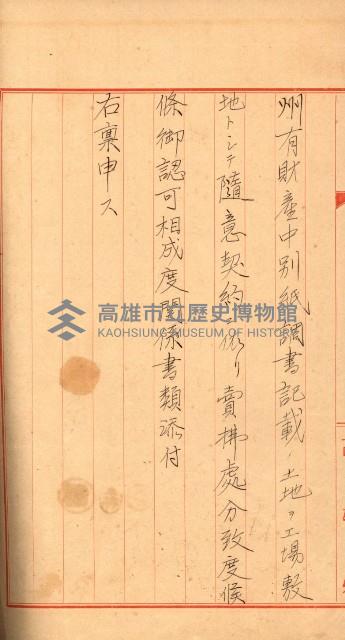 州有財産中別紙調書記載ノ土地ヲ工場敷
地トシテ隨意契約ニ依リ賣拂處分致度候
條御認可相成度關係書類添付
右稟申ス
高雄市立歷史博物館
KAOHSIUNG MUSEUM OF HISTORY